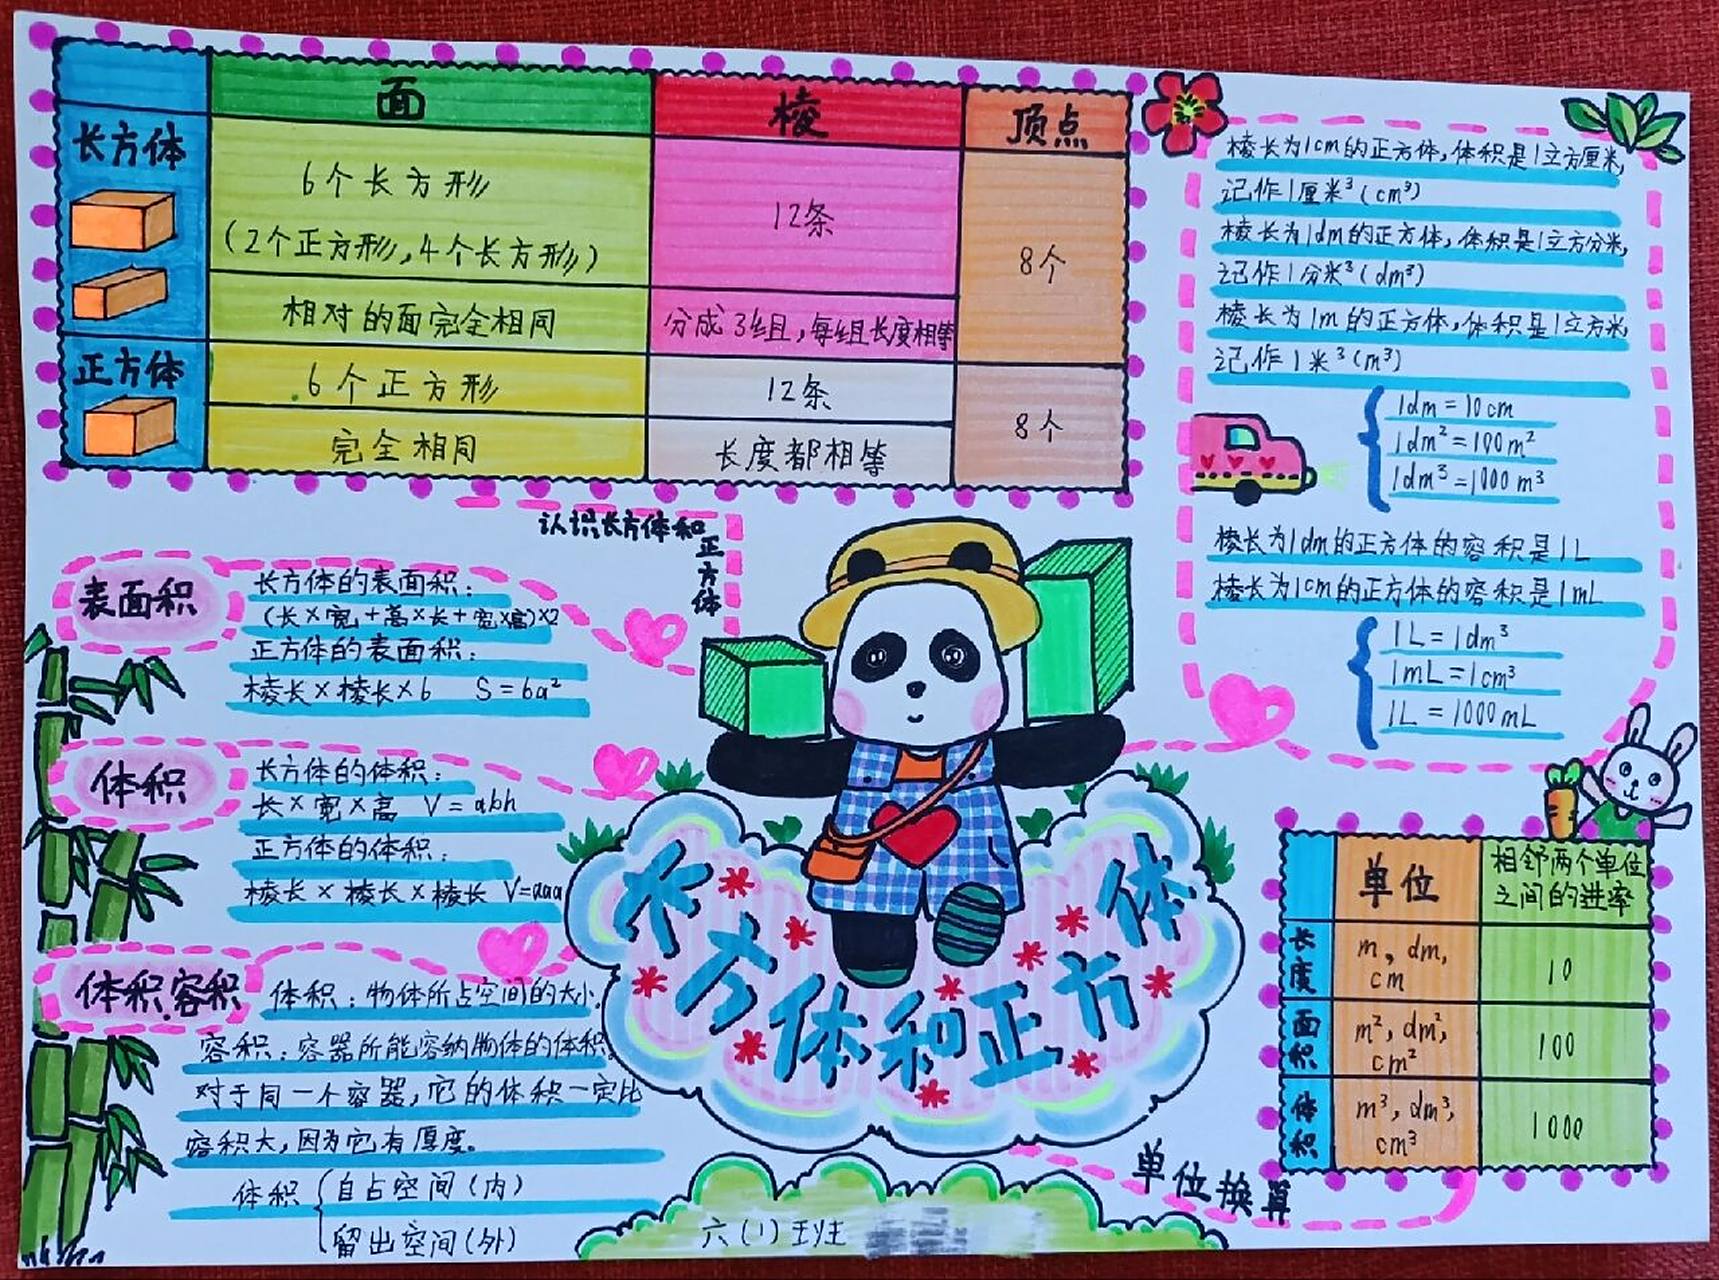 面
棱
顶点
长方体
6个长方形
(2个正方形,4个长方形)
12条
8个
相对的面完全相同
分成3组,每组长度相等
正方体
6个正方形
12条
8个
完全相同
长度都相等
认识长方体和
正方体
表面积
长方体的表面积:
(长×宽+高×长+宽×高)×2
正方体的表面积:
棱长×棱长×6 S=6a²
体积
长方体的体积:
长×宽×高 V=abh
正方体的体积:
棱长×棱长×棱长 V=aaa
体积.容积
体积:物体所占空间的大小.
容积:容器所能容纳物体的体积
对于同一个容器,它的体积一定比
容积大,因为它有厚度。
体积
自占空间(内)
留出空间(外)
长方体和正方体
六(1)班
棱长为1cm的正方体,体积是1立方厘米,
记作1厘米³(cm³)
棱长为1dm的正方体,体积是1立方分米,
记作1分米³(dm³)
棱长为1m的正方体,体积是1立方米,
记作1米³(m³)
1dm=10cm
1dm²=100m²
1dm³=1000m³
棱长为1dm的正方体的容积是1L
棱长为1cm的正方体的容积是1mL
1L=1dm³
1mL=1cm³
1L=1000mL
单位
相邻两个单位
之间的进率
长度
m,dm,
cm
10
面积
m²,dm²,
cm²
100
体积
m³,dm³,
cm³
1000
单位换算